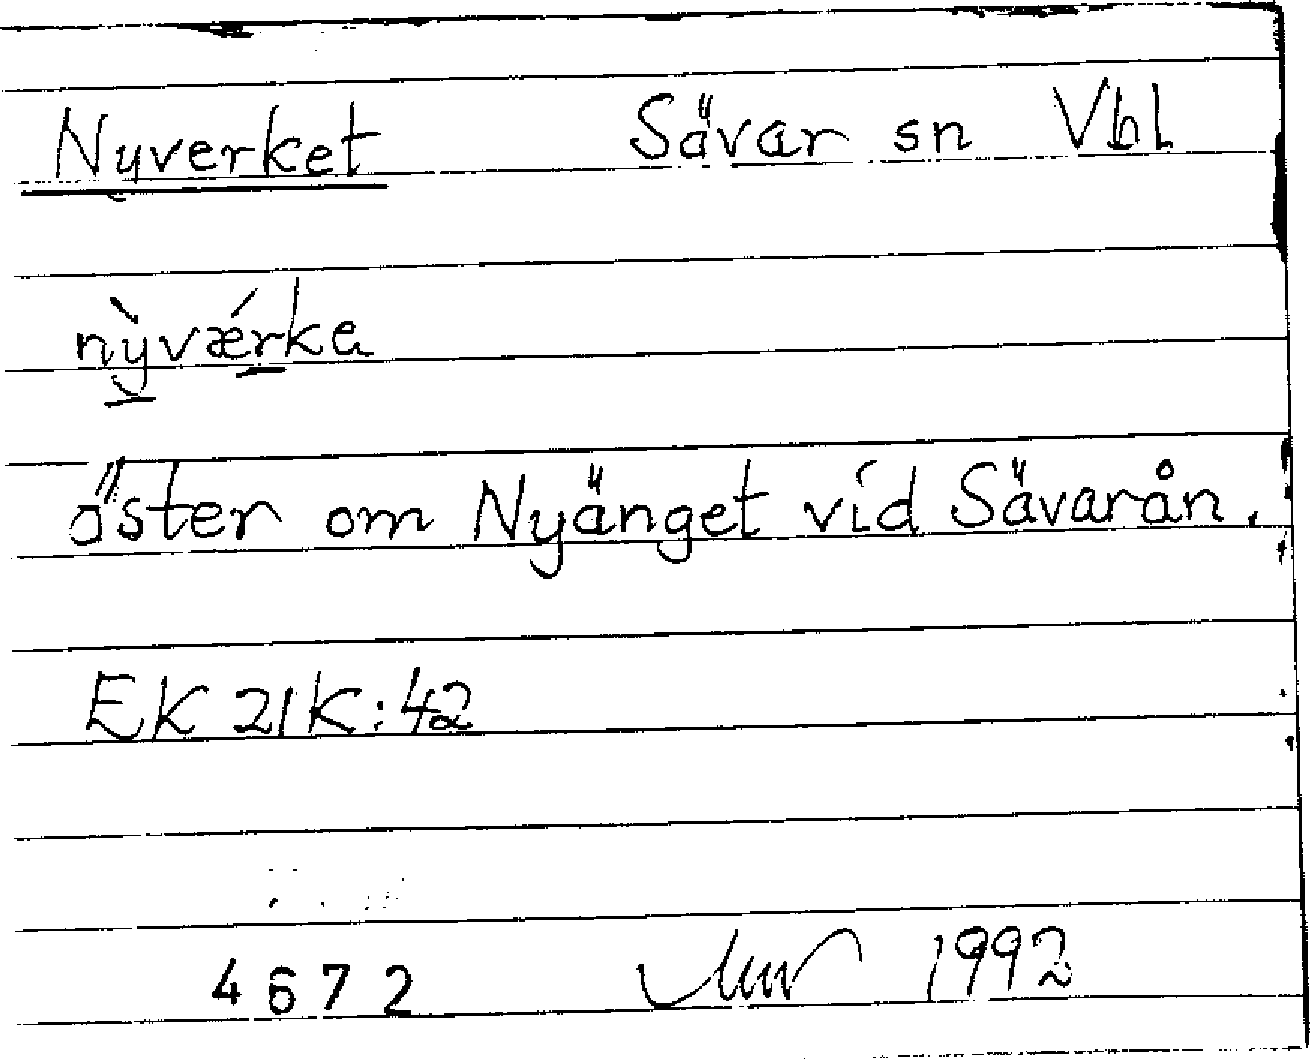 Nyverket Sävar sn Vbl
nỳværka
öster om Nyänget vid Sävarån.
EK 21K:42
4672 1992